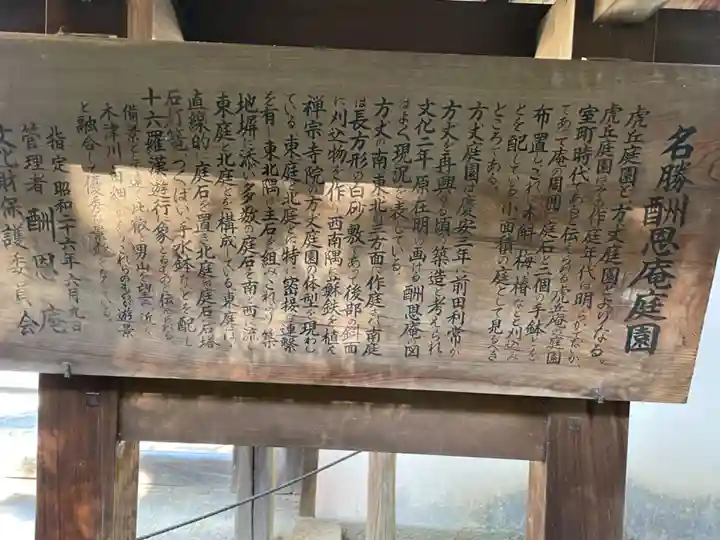 名勝 酬恩庵庭園
虎丘庭園と方丈庭園よりなる。
虎丘庭園はその作庭年代は明らかでないが、
室町時代であると伝えられる虎丘庵の庭園
であって庵の周囲に庭石と二個の手鉢などを
布置し、これに木斛、梅、椿など刈込み
などを配している小面積の庭として見るべき
ところがある。
方丈庭園は慶安三年に前田利常が
方丈を再興する頃の築造と考えられ
文化二年 原在明の画ける酬恩庵の図
はよく現況を表している。
方丈の南、東、北の三方面に作庭され南庭
は長方形の白砂敷であって後部の斜面
に刈込物を作り西南隅に蘇鉄を植え
禅宗寺院の方丈庭園の体型を現わし
ている。東庭と北庭とは特に密接な連繋
を有し東北隅に主石を組みこれより集
地堺に添い多数の庭石を南、西に流し
東庭と北庭とを構成している。東庭は
直線的に庭石を置き北庭は庭石、石塔
石灯篭、つくばい手水鉢などを配し
十六羅漢遊行の象であると伝えられる
備景として遠く比叡、男山を望み近く
木津川を
と融合して優秀な景観となっている。
指定 昭和二十六年六月九日
管理者 酬恩庵
文化財保護委員会